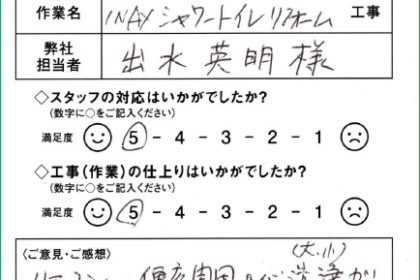 作業名 INAXシャワートイレリフォーム 工事
弊社
担当者 出水英明様
◇スタッフの対応はいかがでしたか?
(数字に○をご記入ください)
満足度 5 - 4 - 3 - 2 - 1
◇工事(作業)の仕上りはいかがでしたか?
(数字に○をご記入ください)
満足度 5 - 4 - 3 - 2 - 1
〈ご意見・ご感想〉 (大、小)
リモコン 便座 洗浄が